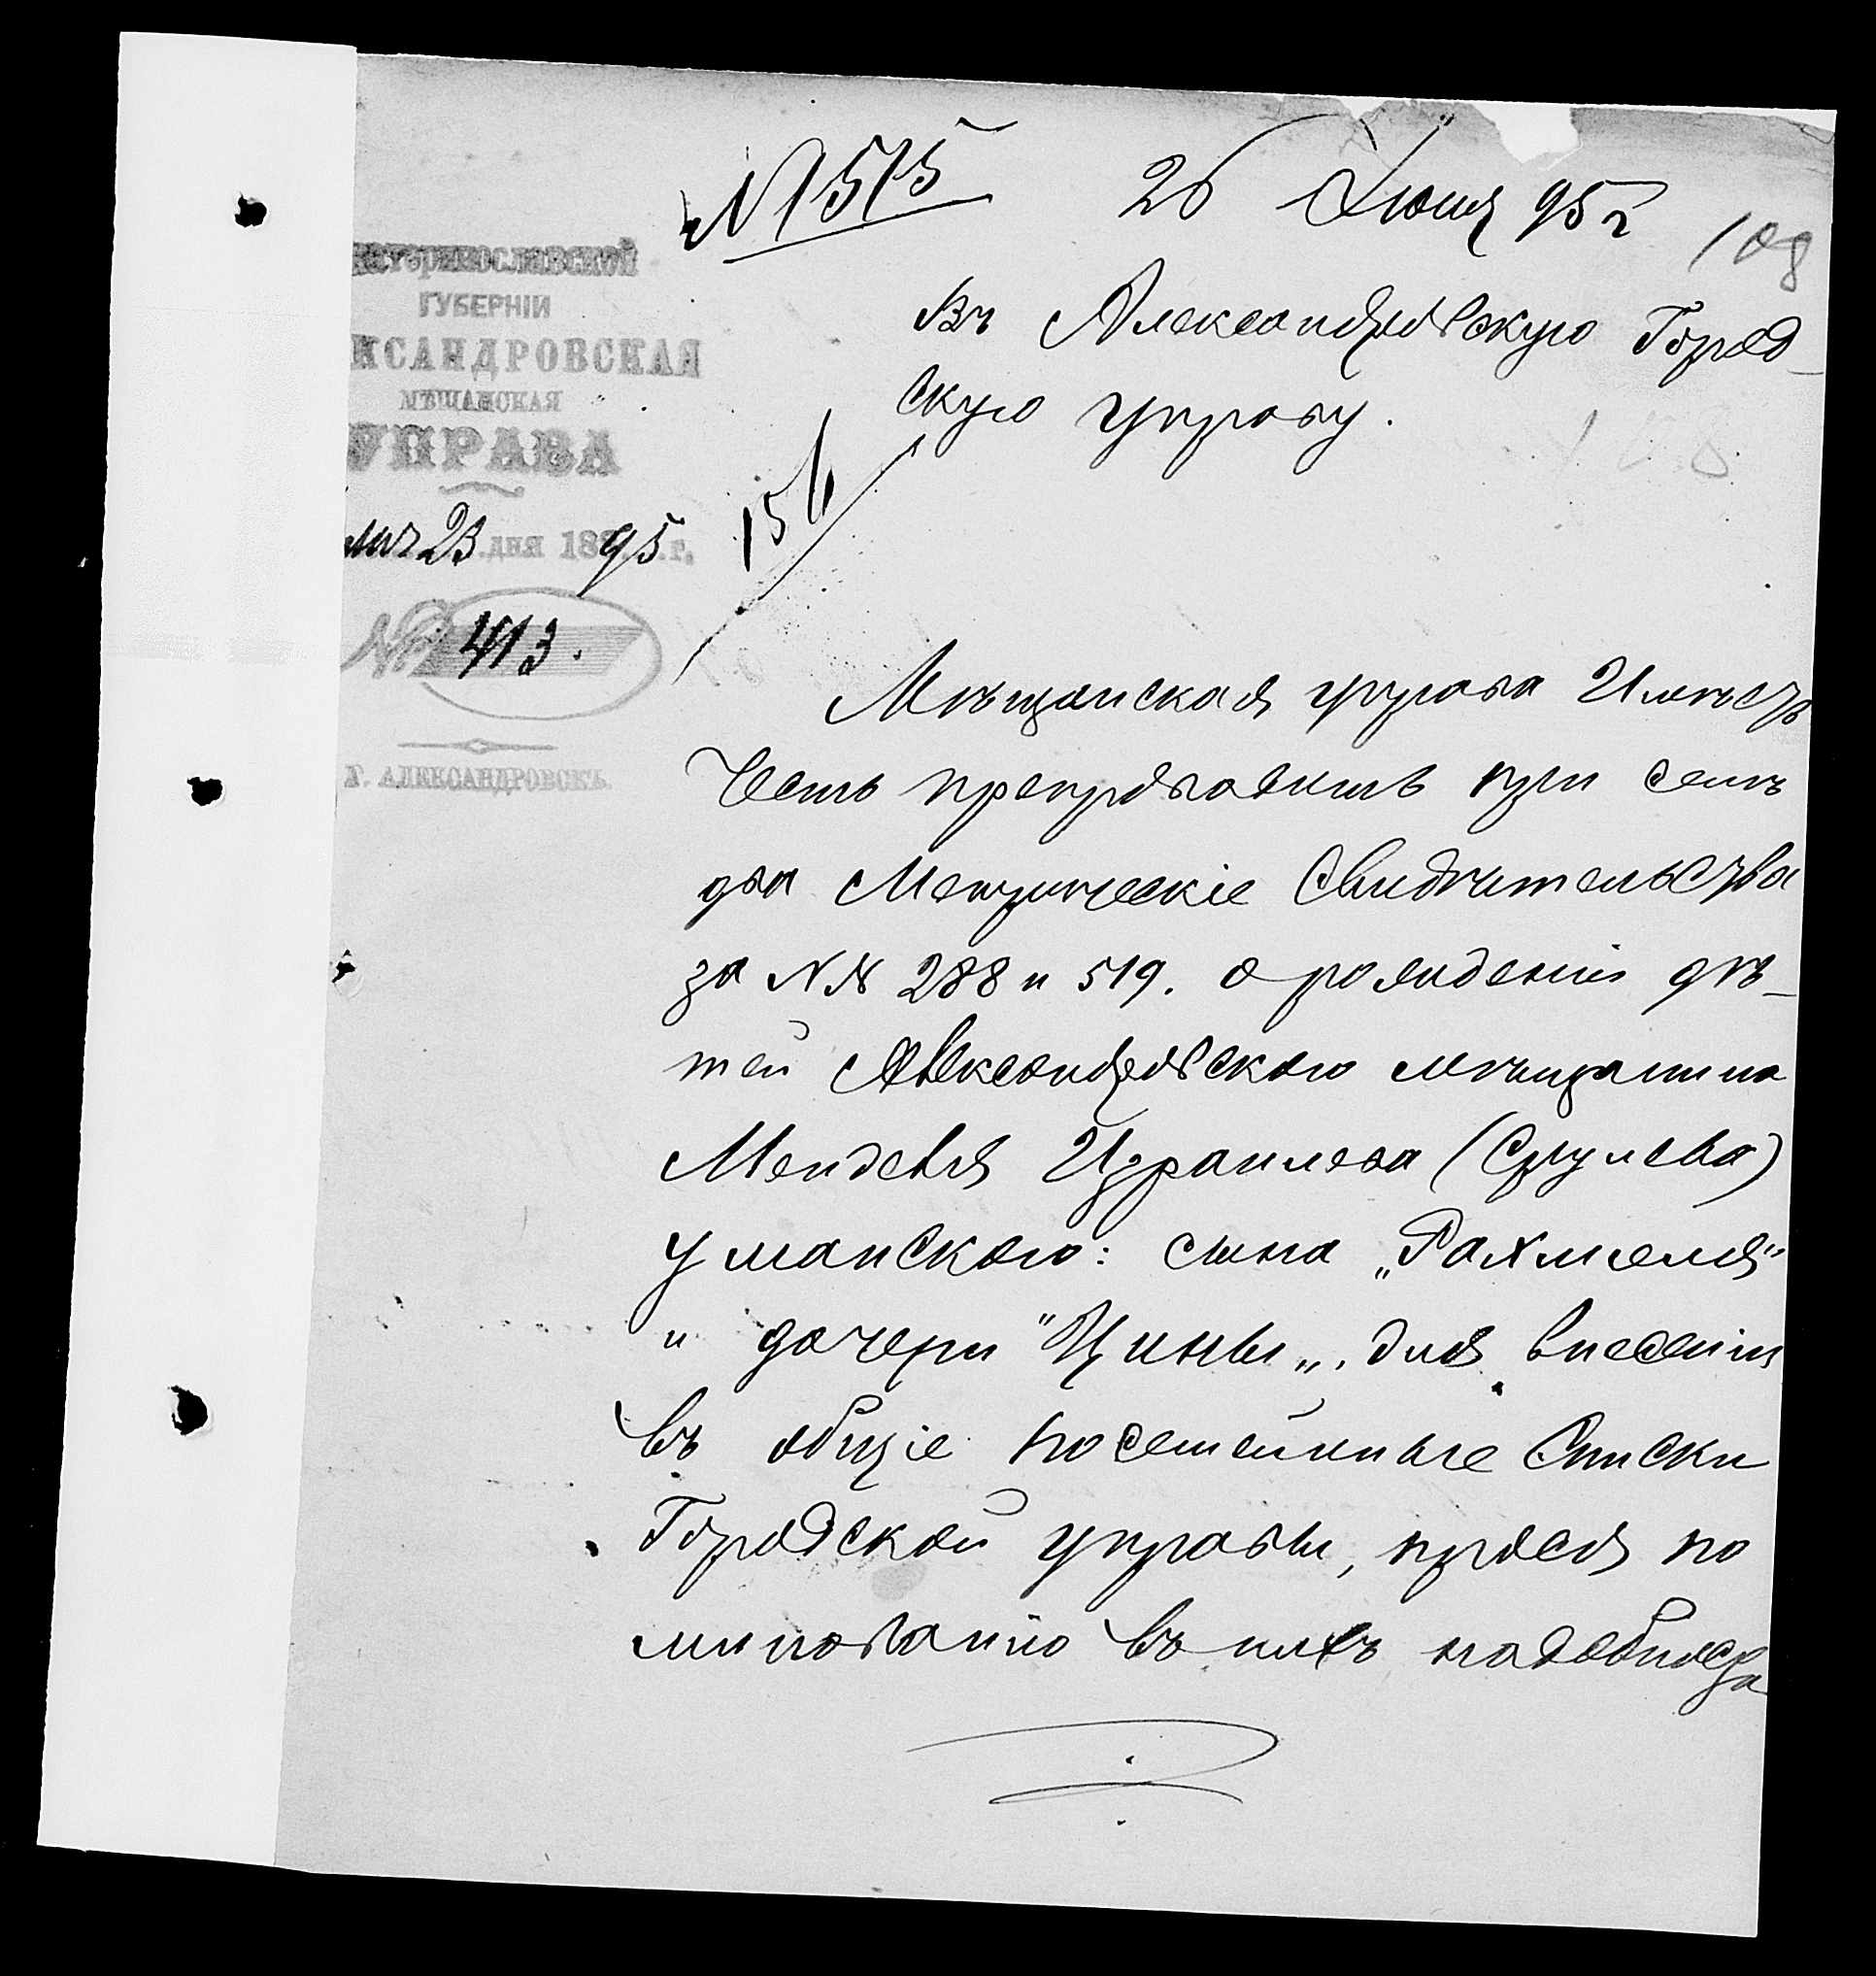 № 1515 26 Іюня 95 г
108
Въ Александровскую Город-
скую управу.
катеринославской
ГУБЕРНІИ
КСАНДРОВСКАЯ
МѢЩАНСКАЯ
УПРАВА
23 дня 1895 г.
№ 413.
Г. АЛЕКСАНДРОВСКЪ.
156
Мѣщанская управа Имѣетъ
Честь препроводить при семъ
два Метрическіе Свидѣтельства
за №№ 288 и 519. о рожденіи дѣ-
тей Александровскаго мѣщанина
Менделя Израилева (Срулева)
Уманскаго: сына „Рахмеля"
и дочери "Цины„. для внесенія
въ общіе посемейные Списки
Городской управы, прося по
минованію въ нихъ надобности